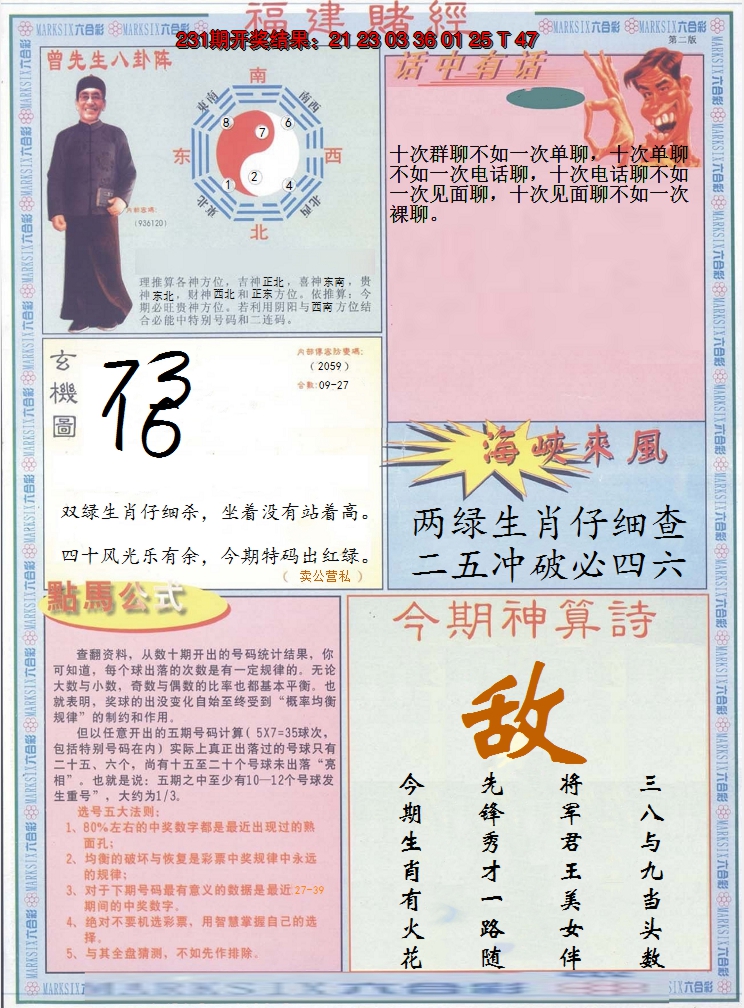 福建賭經
231期开奖结果：21 23 03 36 01 25 T 47
第二版
MARKSIX六合彩
曾先生八卦阵
南
东南
西南
8
7
6
东
西
1
2
4
东北
西北
北
内部密碼:
（936120）
理推算各神方位，吉神正北，喜神东南，贵
神东北，财神西北和正东方位。依推算：今
期必旺贵神方位。若利用阴阳与西南方位结
合必能中特别号码和二连码。
话中有话
十次群聊不如一次单聊，十次单聊
不如一次电话聊，十次电话聊不如
一次见面聊，十次见面聊不如一次
裸聊。
玄機圖
73
16
（2059）
合数:09-27
双绿生肖仔细杀，坐着没有站着高。
四十风光乐有余，今期特码出红绿。
（ 卖公营私 ）
海峽來風
两绿生肖仔细查
二五冲破必四六
點馬公式
查翻资料，从数十期开出的号码统计结果，你
可知道，每个球出落的次数是有一定规律的。无论
大数与小数，奇数与偶数的比率也都基本平衡。也
就表明，奖球的出没变化自始至终受到“概率均衡
规律”的制约和作用。
但以任意开出的五期号码计算（5X7=35球次，
包括特别号码在内）实际上真正出落过的号球只有
二十五、六个，尚有十五至二十个号球未出落“亮
相”。也就是说：五期之中至少有10—12个号球发
生重号”，大约为1/3。
选号五大法则：
1、80%左右的中奖数字都是最近出现过的熟
面孔；
2、均衡的破坏与恢复是彩票中奖规律中永远
的规律；
3、对于下期号码最有意义的数据是最近27-39
期间的中奖数字。
4、绝对不要机选彩票，用智慧掌握自己的选
择。
5、与其全盘猜测，不如先作排除。
今期神算詩
敌
三八与九当头数
将军君王美女伴
先锋秀才一路随
今期生肖有火花